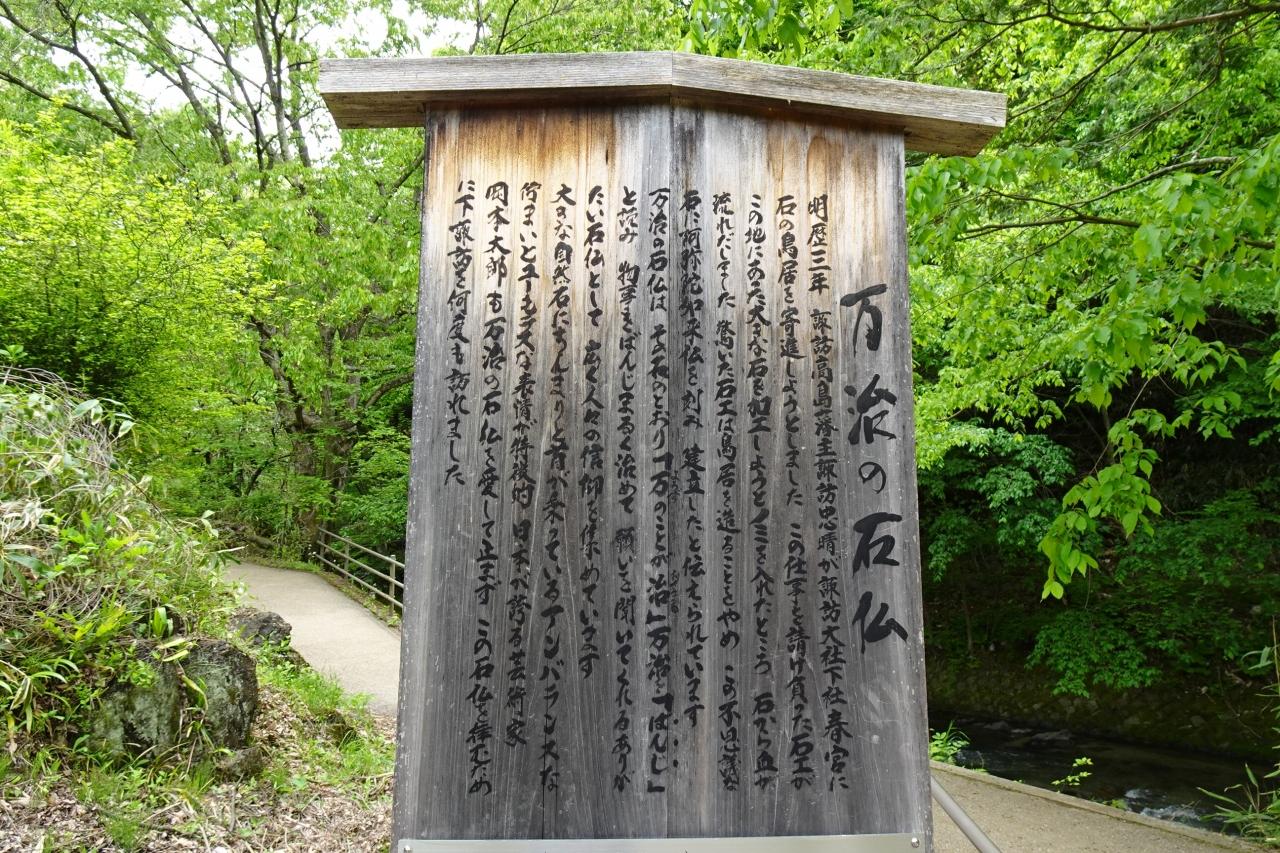 万治の石仏
明歴三年 諏訪高島藩主諏訪忠晴が諏訪大社下社春宮に
石の鳥居を寄進しようとしました この仕事を請け負った石工が
この地にあった大きな石を加工しようとノミを入れたところ 石から血が
流れだしました 驚いた石工は鳥居を造ることをやめ この不思議な
石に阿弥陀如来仏を刻み 建立したと伝えられています
万治の石仏は その石のとおり「万のことが治」万治を「ばんじ」
と読み 物事をばんじまるく治めて 願いを聞いてくれるありが
たい石仏として 広く人々の信仰を集めています
大きな自然石にちょんまりと首が乗っているアンバランスな
佇まいとユーモラスな表情が特徴的 日本が誇る芸術家
岡本太郎も万治の石仏を愛して止まず この石仏を拝むため
に下諏訪を何度も訪れました